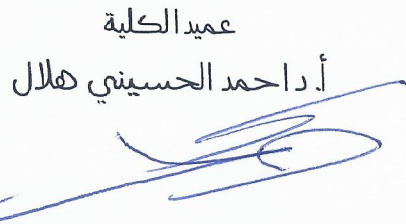 عميد الكلية
أ.د احمد الحسيني هلال